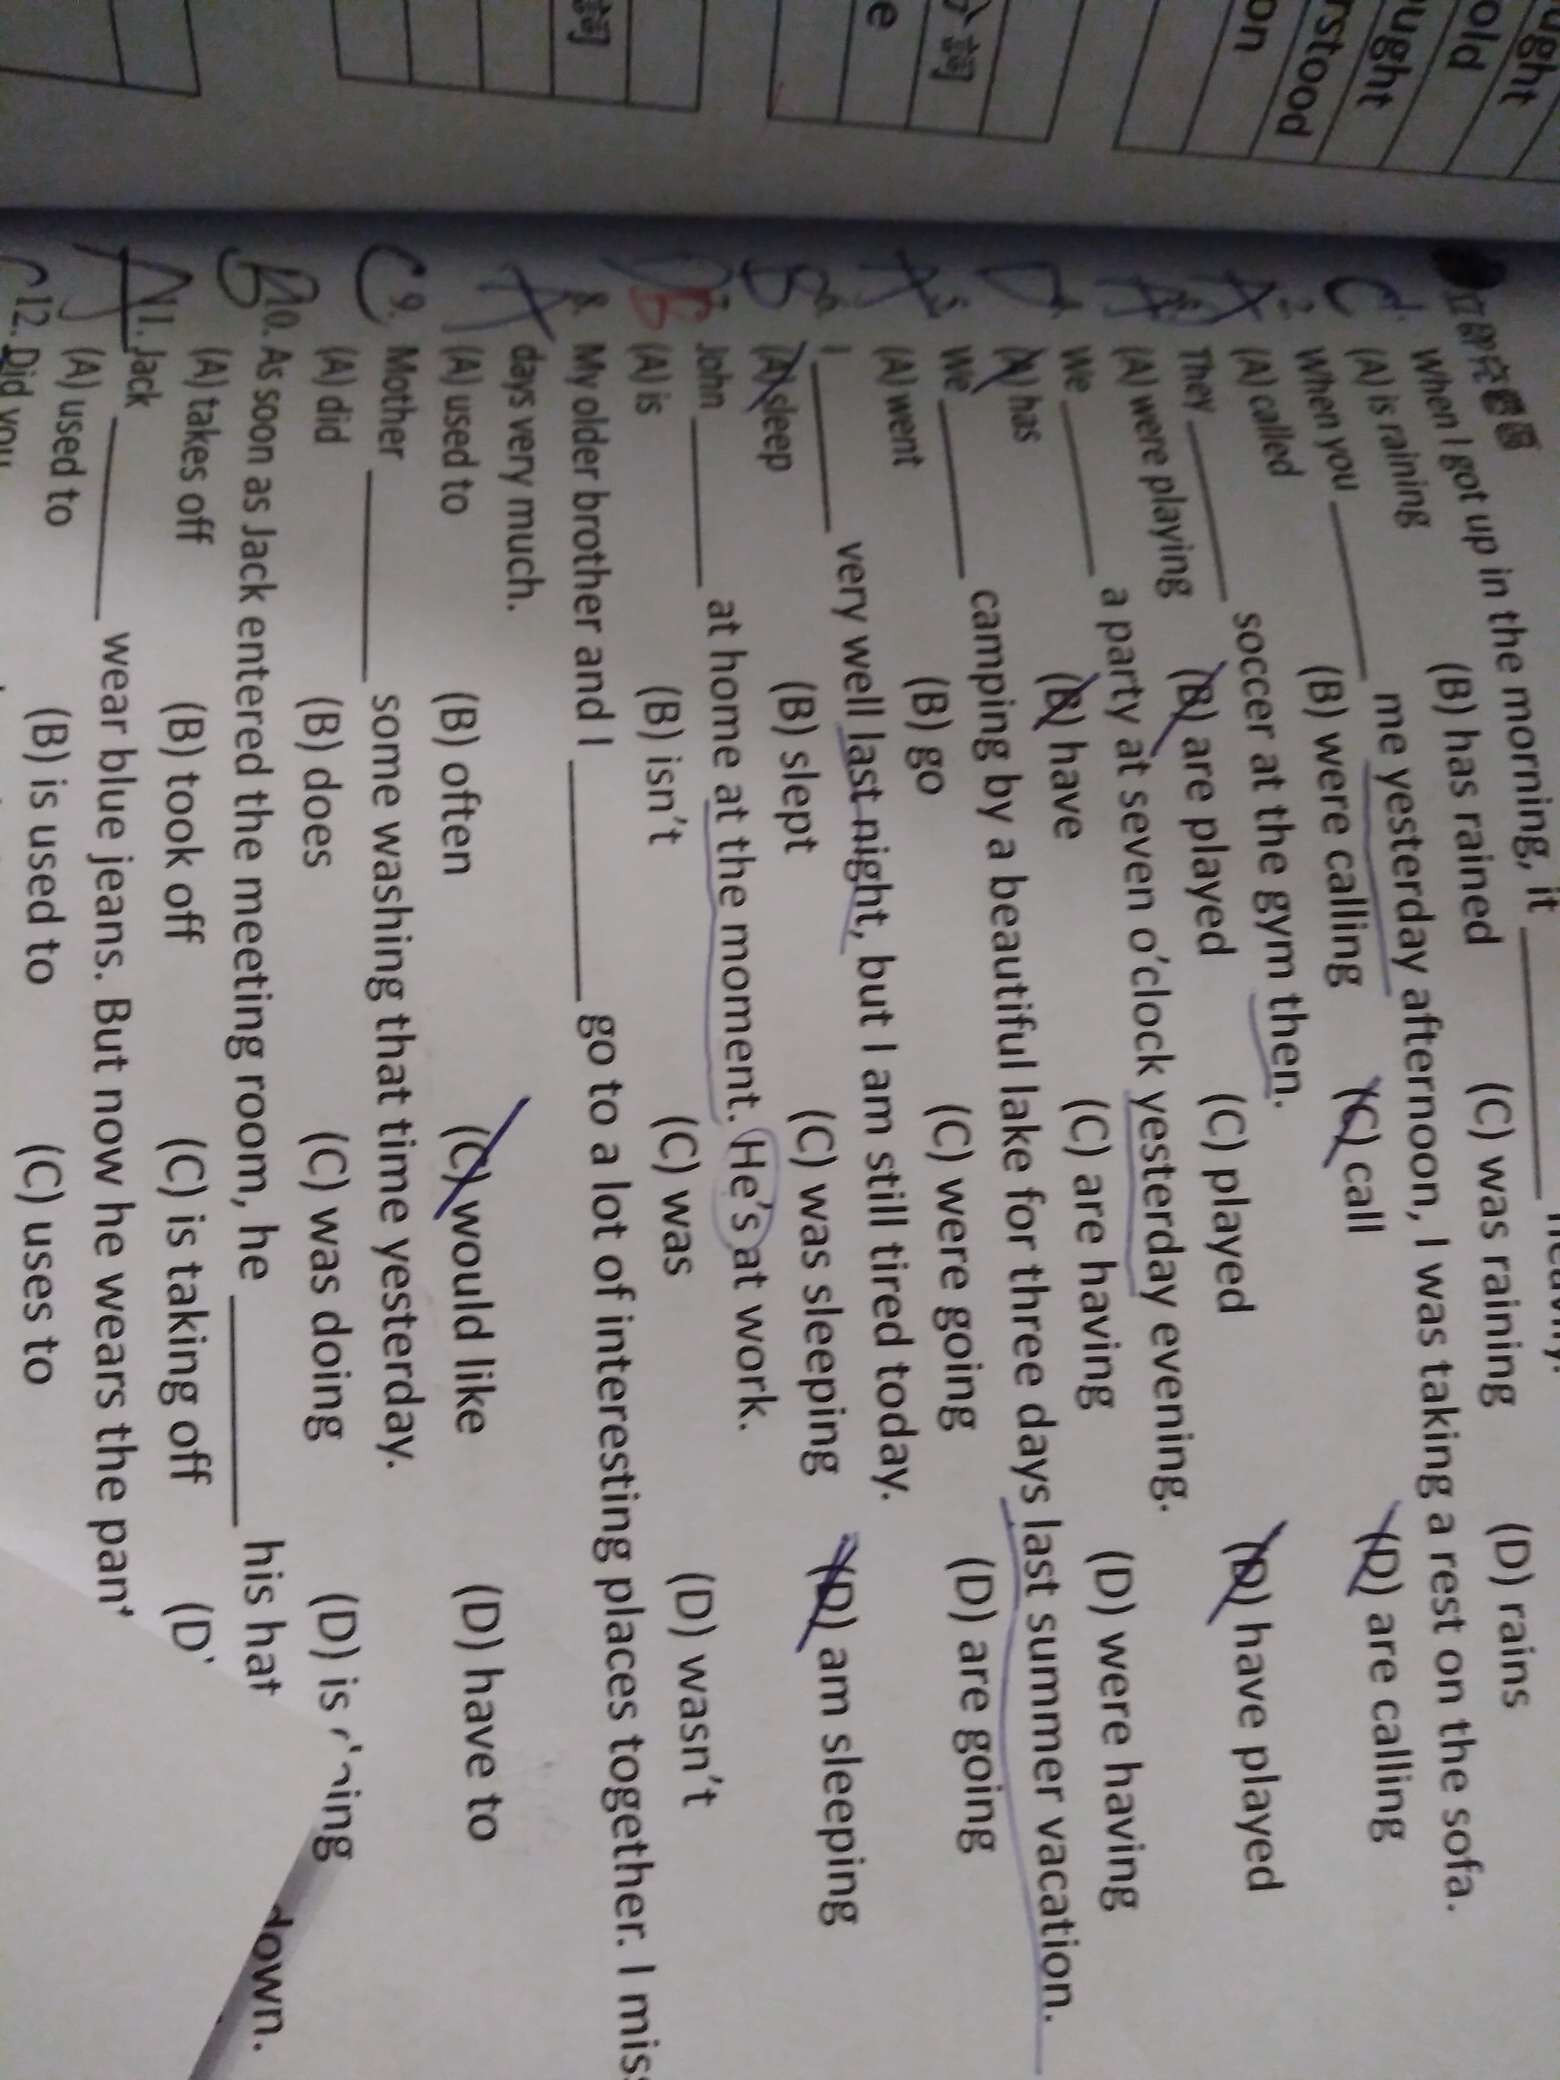 ught
old
ught
rstood
on
分詞
e
詞
heavily.
1. When I got up in the morning, it
(A) is raining (B) has rained (C) was raining (D) rains
C
2. When you me yesterday afternoon, I was taking a rest on the sofa.
(A) called (B) were calling (C) call (D) are calling
A
They soccer at the gym then.
(A) were playing (B) are played (C) played (D) have played
A
We a party at seven o'clock yesterday evening.
(A) has (B) have (C) are having (D) were having
D
We camping by a beautiful lake for three days last summer vacation.
(A) went (B) go (C) were going (D) are going
A
I very well last night, but I am still tired today.
(A) sleep (B) slept (C) was sleeping (D) am sleeping
B
7. John at home at the moment. He's at work.
(A) is (B) isn't (C) was (D) wasn't
B
8. My older brother and I go to a lot of interesting places together. I miss
days very much.
(A) used to (B) often (C) would like (D) have to
A
9. Mother some washing that time yesterday.
(A) did (B) does (C) was doing (D) is
C
10. As soon as Jack entered the meeting room, he his hat down.
(A) takes off (B) took off (C) is taking off (D)
B
11. Jack wear blue jeans. But now he wears the
(A) used to (B) is used to (C) uses to
A
12. Did you